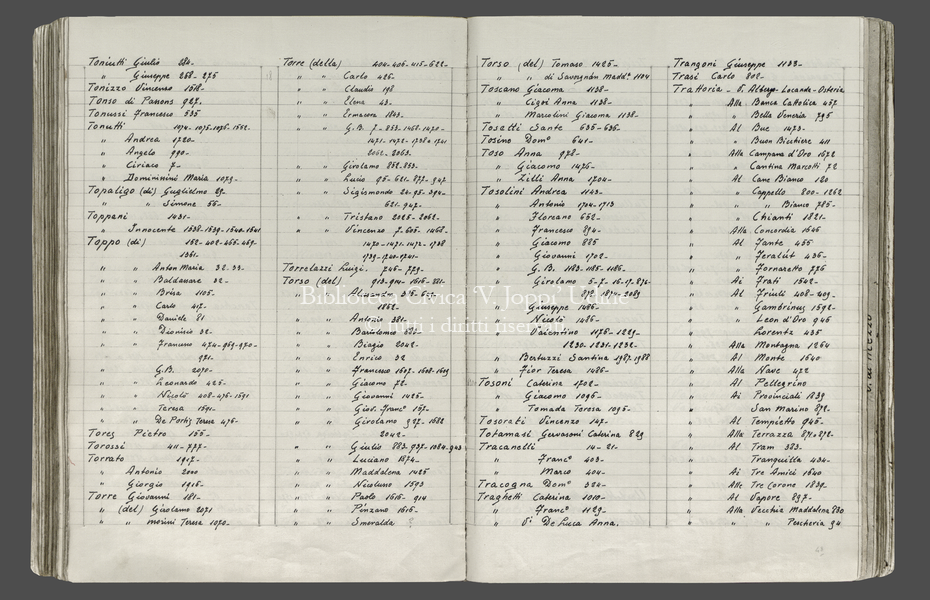 Toniutti Giulio 284-
" Giuseppe 268-275
Tonizzo Vincenzo 1518-
Tonso di Passons 927.
Tonussi Francesco 535
Tonutti 1074-1075-1076-1562.
" Andrea 1720-
" Angelo 990-
" Ciriaco 7-
" Dominissini Maria 1079-
Topaligo (di) Guglielmo 29-
" " Simone 56-
Toppani 1431-
" Innocente 1538-1539-1540-1541
Toppo (di) 152-402-465-469-
1361-
" " Anton Maria 32-33-
" " Baldassare 32-
" " Brisa 1105-
" " Carlo 417-
" " Daniele 81
" " Dionisio 32-
" " Francesco 474-969-970-
971-
" " G.B. 2070-
" " Leonardo 425-
" " Nicolò 408-476-1591
" " Teresa 1591-
" " De Portis Teresa 476-
Tores Pietro 155-
Torossi 411-777-
Torrato 1917-
" Antonio 2000
" Giorgio 1916-
Torre Giovanni 181-
" (del) Girolamo 2071
" " morini Teresa 1070-
Torre (della) 404-406-415-622-
" " Carlo 426-
" " Claudio 198
" " Elena 43-
" " Ermacora 1843-
" " G.B. 7-853-1468-1470-
1471-1472-1738-1741
2062-2063-
" " Girolamo 852-853-
" " Lucio 95-621-877-947
" " Sigismondo 24-95-394-
621-947-
" " Tristano 2025-2062-
" " Vincenzo 7-605-1468-
1470-1471-1472-1738
1739-1740-1741-
Torrelazzi Luigi. 745-779-
Torso (del) 913-914-1616-881-
" "
1862-
" " Antonio 381-
" " Bartolomeo
" " Biagio 2042-
" " Enrico 32
" " Francesco 1607-1608-1609
" " Giacomo 72-
" " Giovanni 1425-
" " Giov. Franc° 157-
" " Girolamo 937-1582
2042-
" " Giulio 883-937-1084-943
" " Luciano 1574-
" " Maddalena 1425
" " Nicoluso 1593
" " Paolo 1616-914
" " Pinzano 1616-
" " Smeralda ?
Torso (del) Tomaso 1425-
" " di Savorgnan Madda 1104
Toscano Giacoma 1138-
" Cigoi Anna 1138-
" Marcolini Giacoma 1138-
Tosatti Sante 635-636-
Tosino Dom° 641-
Toso Anna 978-
" Giacomo 1476-
" Zilli Anna 1704-
Tosolini Andrea 1143-
" Antonio 1704-1713
" Floreano 652-
" Francesco 894-
" Giacomo 825
" Giovanni 1702-
" G.B. 1183-1185-1186-
" Girolamo 5-7-16-17-876-
" Giuseppe 1486-
" Nicolò 1486-
" Valentino 1176-1229-
1230-1231-1232-
" Bertuzzi Santina 1987-1988
" Fior Teresa 1486-
Tosoni Caterina 1702-
" Giacomo 1096-
" Tomada Teresa 1095-
Tosorati Vincenzo 147-
Totamasi Gervasoni Caterina 829
Tracanelli 14-21-
" Franc° 403-
" Marco 404-
Tracogna Dom° 324-
Traghetti Caterina 1010-
" Franc° 1129-
" V. De Lucca Anna.
Trangoni Giuseppe 1133-
Trasi Carlo 802-
Trattoria - V. Albergo-Locanda-Osteria
" Alla Banca Cattolica 457
" " Bella Venezia 795
" Al Bue 1473-
" " Buon Bicchiere 411
" Alla Campana d'Oro 1672
" " Cantina Marcotti 72
" Al Cane Bianco 120
" " Cappello 800-1262
" " " Bianco 785-
" " Chianti 1821-
" Alla Concordia 1646
" Al Fante 455
" " Feralut 436-
" " Fornaretto 776
" Ai Frati 1542-
" Al Friuli 408-409-
" " Gambrinus 1592-
" " Leon d'Oro 946
" Lorentz 435
" Alla Montagna 1264
" Al Monte 1640
" Alla Nave 472
" Al Pellegrino
" Ai Provinciali 1839
" San Marino 872-
" Al Tempietto 945-
" Alla Terrazza 871-872-
" Al Tram 383-
" Tranquilla 434-
" Ai Tre Amici 1640
" Alle Tre Corone 1837-
" Al Vapore 897-
" Alla Vecchia Maddalena 880
" " " Pescheria 94
Biblioteca Civica 'V. Joppi' Udine
Tutti i diritti riservati